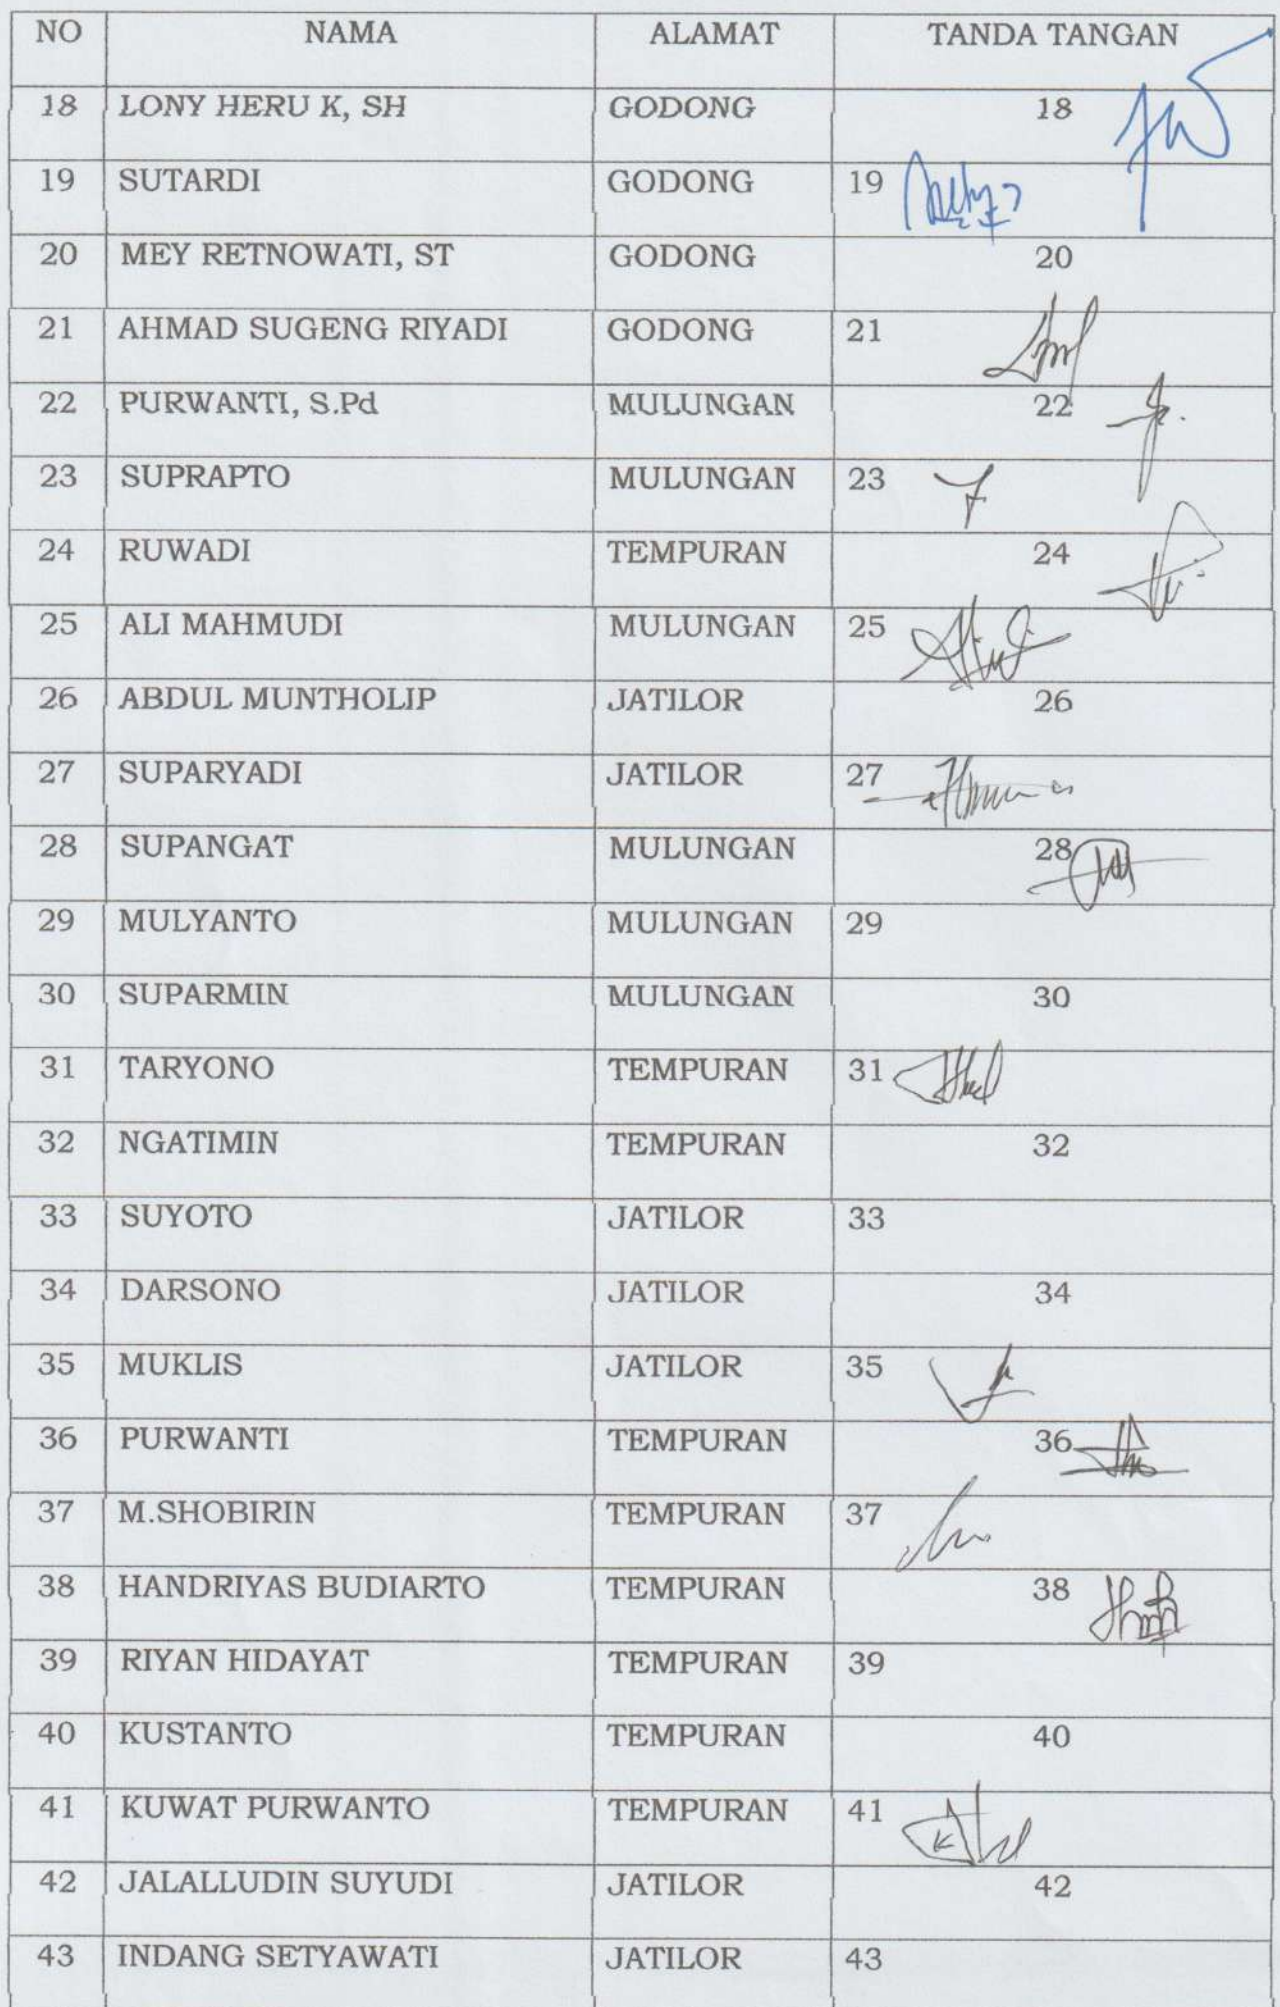 NO NAMA ALAMAT TANDA TANGAN
18 LONY HERU K, SH GODONG 18
19 SUTARDI GODONG 19
20 MEY RETNOWATI, ST GODONG 20
21 AHMAD SUGENG RIYADI GODONG 21
22 PURWANTI, S.Pd MULUNGAN 22
23 SUPRAPTO MULUNGAN 23
24 RUWADI TEMPURAN 24
25 ALI MAHMUDI MULUNGAN 25
26 ABDUL MUNTHOLIP JATILOR 26
27 SUPARYADI JATILOR 27
28 SUPANGAT MULUNGAN 28
29 MULYANTO MULUNGAN 29
30 SUPARMIN MULUNGAN 30
31 TARYONO TEMPURAN 31
32 NGATIMIN TEMPURAN 32
33 SUYOTO JATILOR 33
34 DARSONO JATILOR 34
35 MUKLIS JATILOR 35
36 PURWANTI TEMPURAN 36
37 M.SHOBIRIN TEMPURAN 37
38 HANDRIYAS BUDIARTO TEMPURAN 38
39 RIYAN HIDAYAT TEMPURAN 39
40 KUSTANTO TEMPURAN 40
41 KUWAT PURWANTO TEMPURAN 41
42 JALALLUDIN SUYUDI JATILOR 42
43 INDANG SETYAWATI JATILOR 43